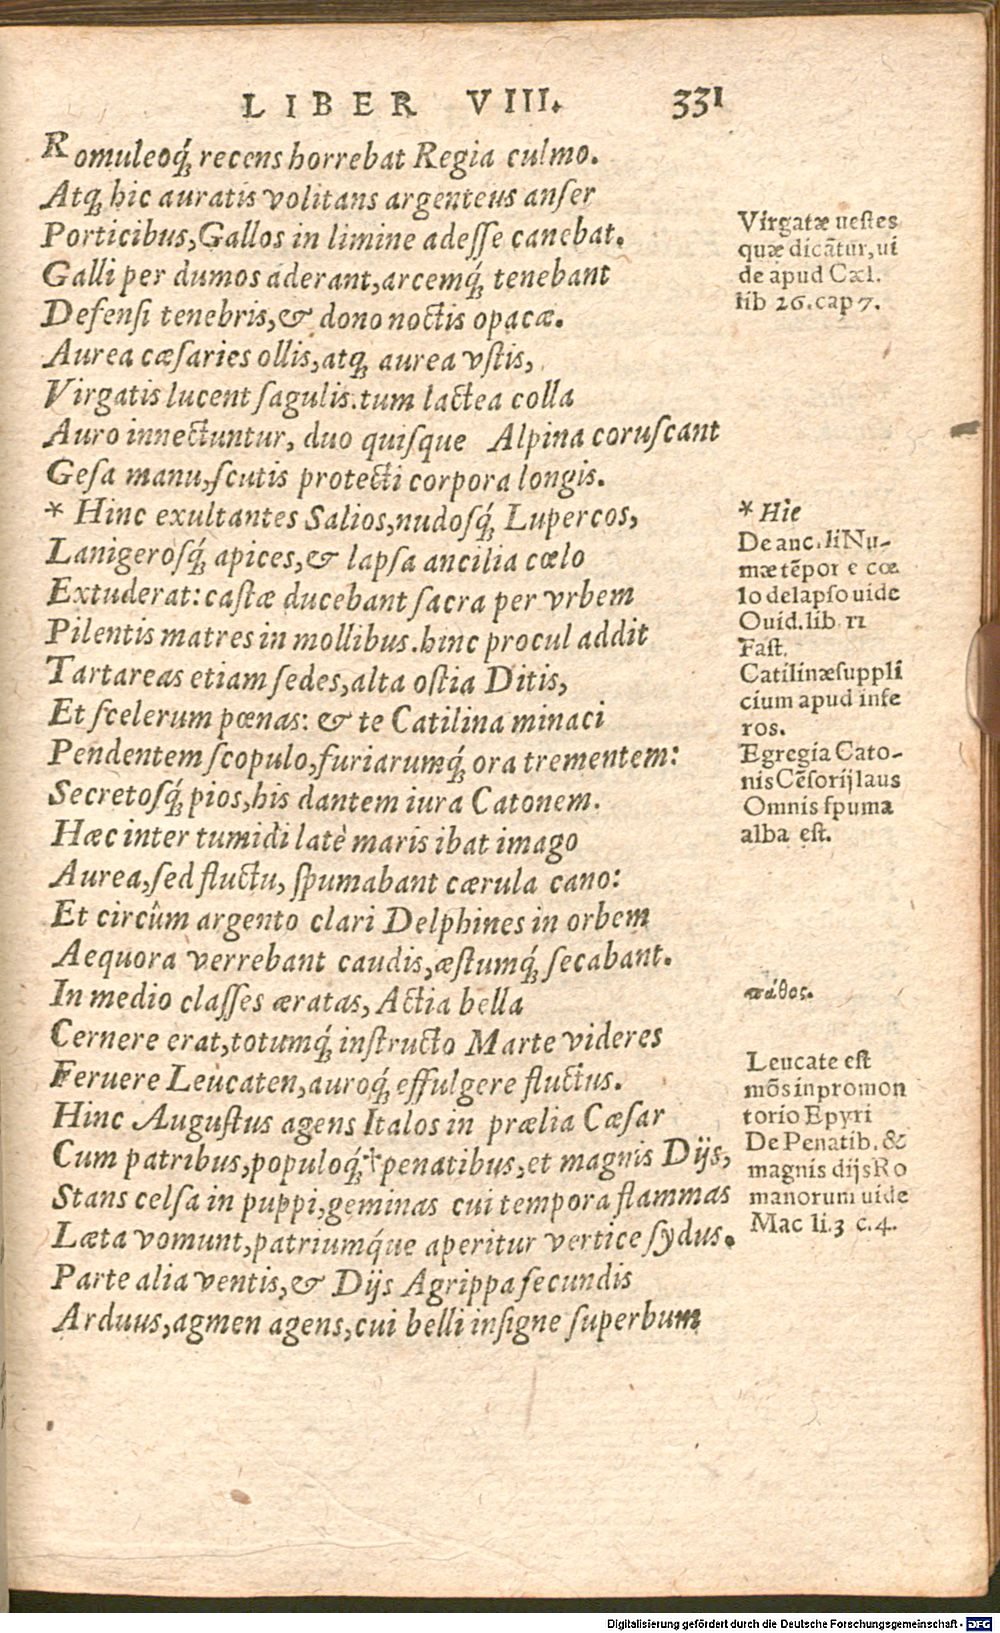 LIBER VIII. 331
Romuleoq́; recens horrebat Regia culmo.
Atq; hic auratis volitans argenteus anſer
Porticibus, Gallos in limine adeſſe canebat.
Galli per dumos aderant, arcemq́; tenebant
Defenſi tenebris, & dono noctis opacæ.
Aurea cæſaries ollis, atq; aurea vſtis,
Virgatis lucent ſagulis. tum lactea colla
Auro innectuntur, duo quiſque Alpina coruſcant
Geſa manu, ſcutis protecti corpora longis.
* Hinc exultantes Salios, nudoſq́; Lupercos,
Lanigeroſq́; apices, & lapſa ancilia cœlo
Extuderat: caſtæ ducebant ſacra per vrbem
Pilentis matres in mollibus. hinc procul addit
Tartareas etiam ſedes, alta oſtia Ditis,
Et ſcelerum pœnas: & te Catilina minaci
Pendentem ſcopulo, furiarumq́; ora trementem:
Secretoſq́; pios, his dantem iura Catonem.
Hæc inter tumidi latè maris ibat imago
Aurea, ſed fluctu, ſpumabant cærula cano:
Et circûm argento clari Delphines in orbem
Aequora verrebant caudis, æſtumq́; ſecabant.
In medio claſſes æratas, Actia bella
Cernere erat, totumq́; inſtructo Marte videres
Feruere Leucaten, auroq́; effulgere fluctus.
Hinc Auguſtus agens Italos in prælia Cæſar
Cum patribus, populoq́; † penatibus, et magnis Dijs,
Stans celſa in puppi, geminas cui tempora flammas
Læta vomunt, patriumq́ue aperitur vertice ſydus.
Parte alia ventis, & Dijs Agrippa ſecundis
Arduus, agmen agens, cui belli inſigne ſuperbum
Virgatæ ueſtes
quæ dicãtur, ui
de apud Cæl.
lib 26. cap 7.
* Hic
De anc. li Nu-
mæ tẽpore cœ
lo delapſo uide
Ouid. lib. II
Faſt.
Catilinæ ſuppli
cium apud infe
ros.
Egregia Cato-
nis Cẽſorij laus
Omnis ſpuma
alba eſt.
πάθος.
Leucate eſt
mõs in promon
torio Epyri
De Penatib. &
magnis dijs Ro
manorum uide
Mac li. 3 c. 4.
Digitalisierung gefördert durch die Deutsche Forschungsgemeinschaft - DFG